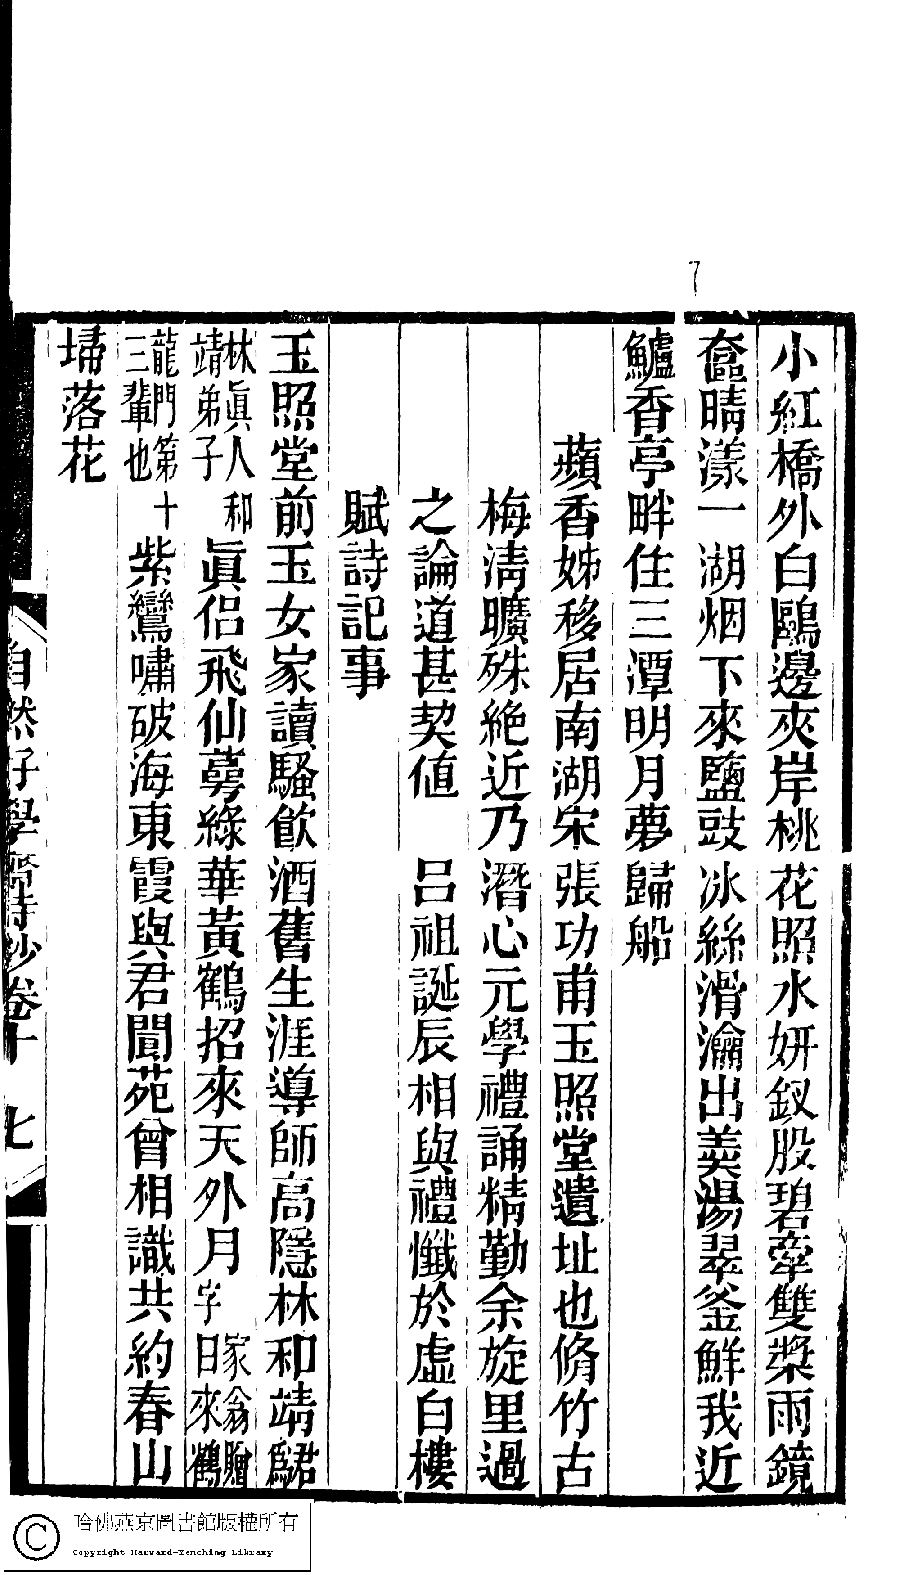 小紅橋外白鷗邊夾岸桃花照水妍釵股碧牽雙槳雨鏡
奩晴漾一湖烟下來鹽豉冰絲滑瀹出羙湯翠釜鮮我近
鱸香亭畔住三潭明月夢歸船
蘋香姊移居南湖宋張功甫玉照堂遺址也脩竹古
梅淸曠殊絶近乃潛心元學禮誦精勤余旋里過
之論道甚契值 呂祖誕辰相與禮懺於虛白樓
賦詩記事
玉照堂前玉女家讀騷飮酒舊生涯導師高隱林和靖君爲
林眞人和靖弟子眞侶飛仙萼綠華黃鶴招來天外月家翁贈字曰來鶴
龍門第十三輩也紫鸞嘯破海東霞與君閬苑曾相識共約春山
埽落花
自然好學齋詩鈔卷十 七
哈佛燕京圖書館版權所有
Copyright Harvard-Yenching Library